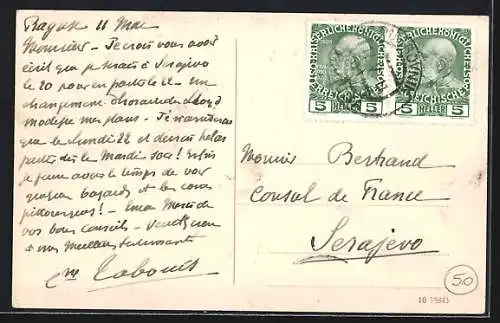 Raguse 11 Mai
Monsieur – Je crois vous avoir
écrit que je serais à Serajevo
le 20 pour en partir le 22 – un
changement d'horaire du Lloyd
modifie mes plans – Je n'arriverai
que le Lundi 22 et devrai hélas
partir dès le Mardi soir! 
je aurai le temps de voir
quelques bazars et les coins
pittoresques! – Encore Merci de
vos bons conseils – Veuillez
à mes Meilleurs
Tabouis
KAISERLICHE KÖNIGLICHE
ÖSTERREICHISCHE POST
5 HELLER 5
KAISERLICHE KÖNIGLICHE
ÖSTERREICHISCHE POST
5 HELLER 5
Monsieur Bertrand
Consul de France
Serajevo
50